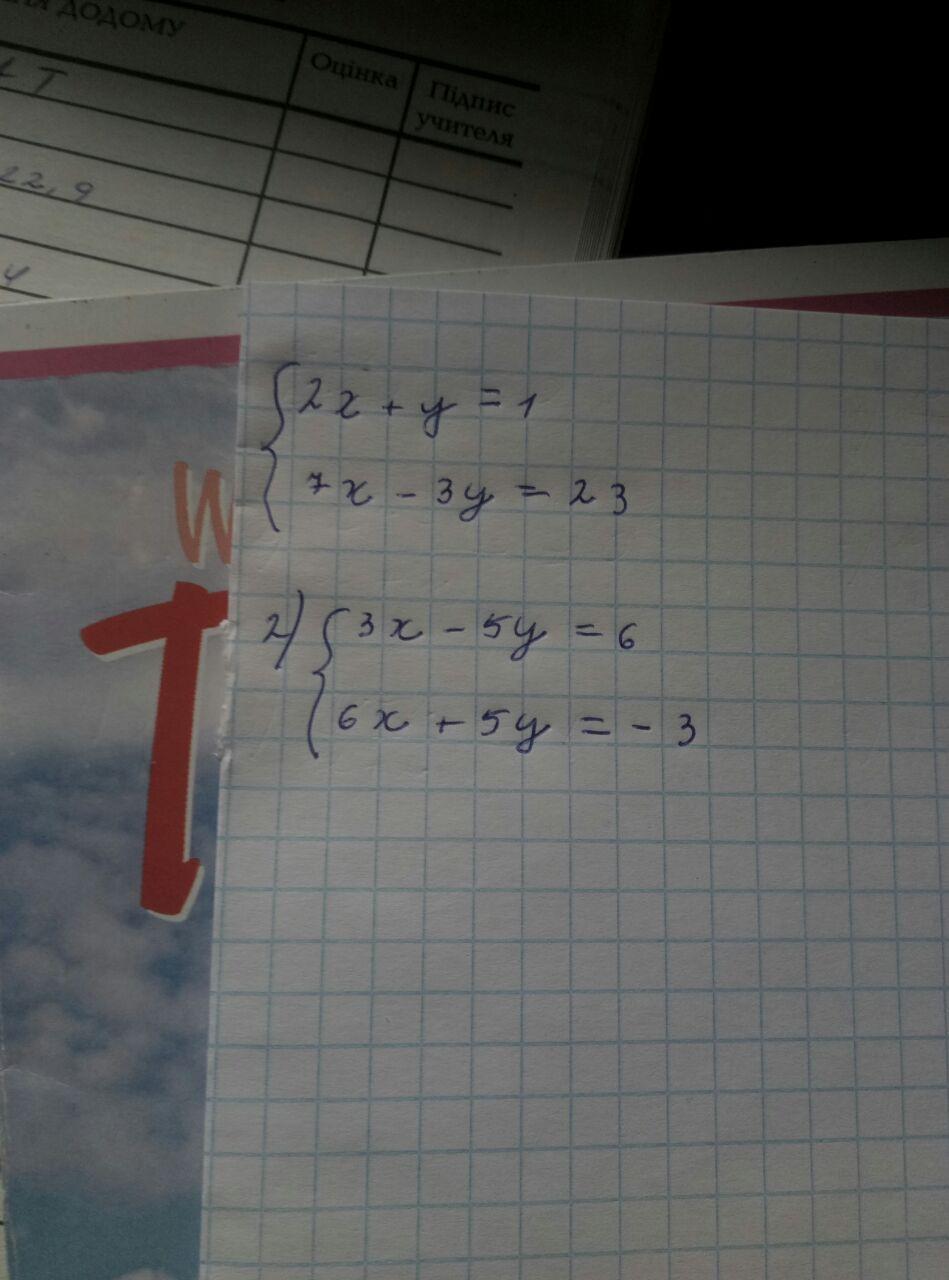 ДОДОМУ
Оцінка
Підпис
учителя
22, 9
{2x + y = 1
7x - 3y = 23
2) {3x - 5y = 6
6x + 5y = - 3